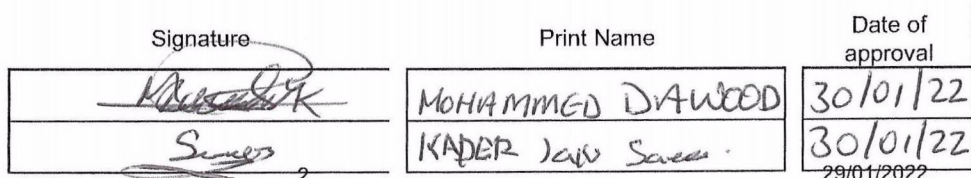 Signature Print Name Date of approval
MOHAMMED DAWOOD 30/01/22
KADER 30/01/22
2 29/01/2022